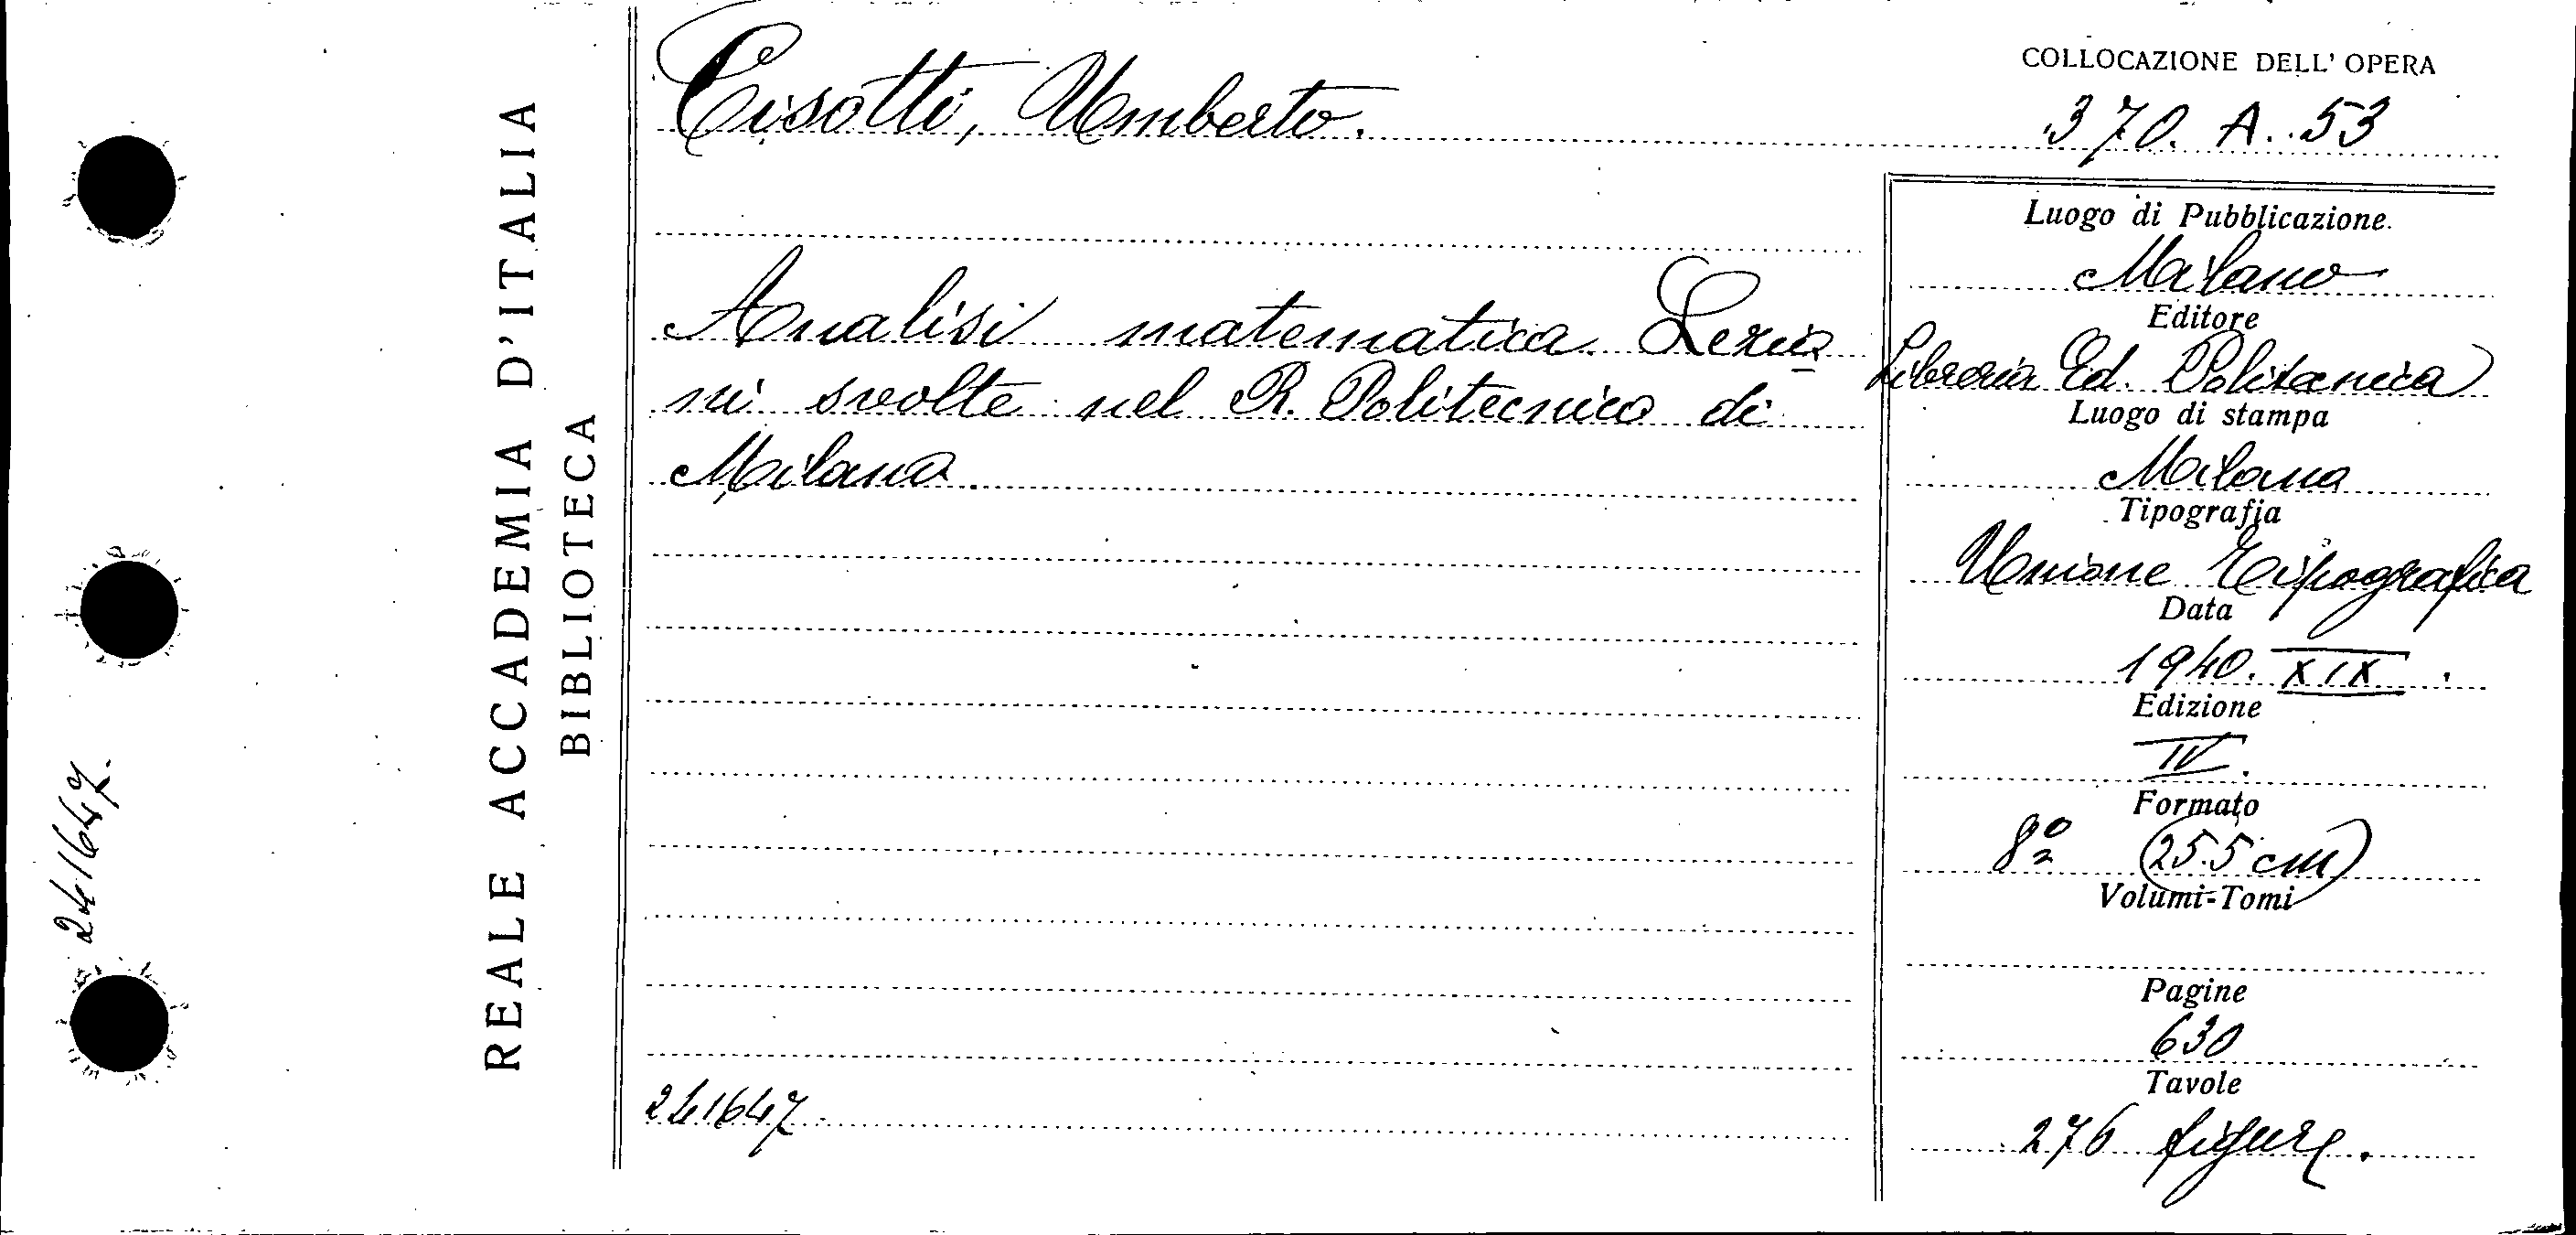 COLLOCAZIONE DELL' OPERA
Cisotti, Umberto.
370. A. 53
Analisi matematica. Lezio
ni svolte nel R. Politecnico di
Milano.
241647.
Luogo di Pubblicazione.
Milano
Editore
Libreria Ed. Politecnica
Luogo di stampa
Milano
Tipografia
Unione Tipografica
Data
1940. XIX.
Edizione
IV.
Formato
8º (25.5 cm)
Volumi-Tomi
Pagine
630
Tavole
276 figure.
REALE ACCADEMIA D'ITALIA
BIBLIOTECA
241647.